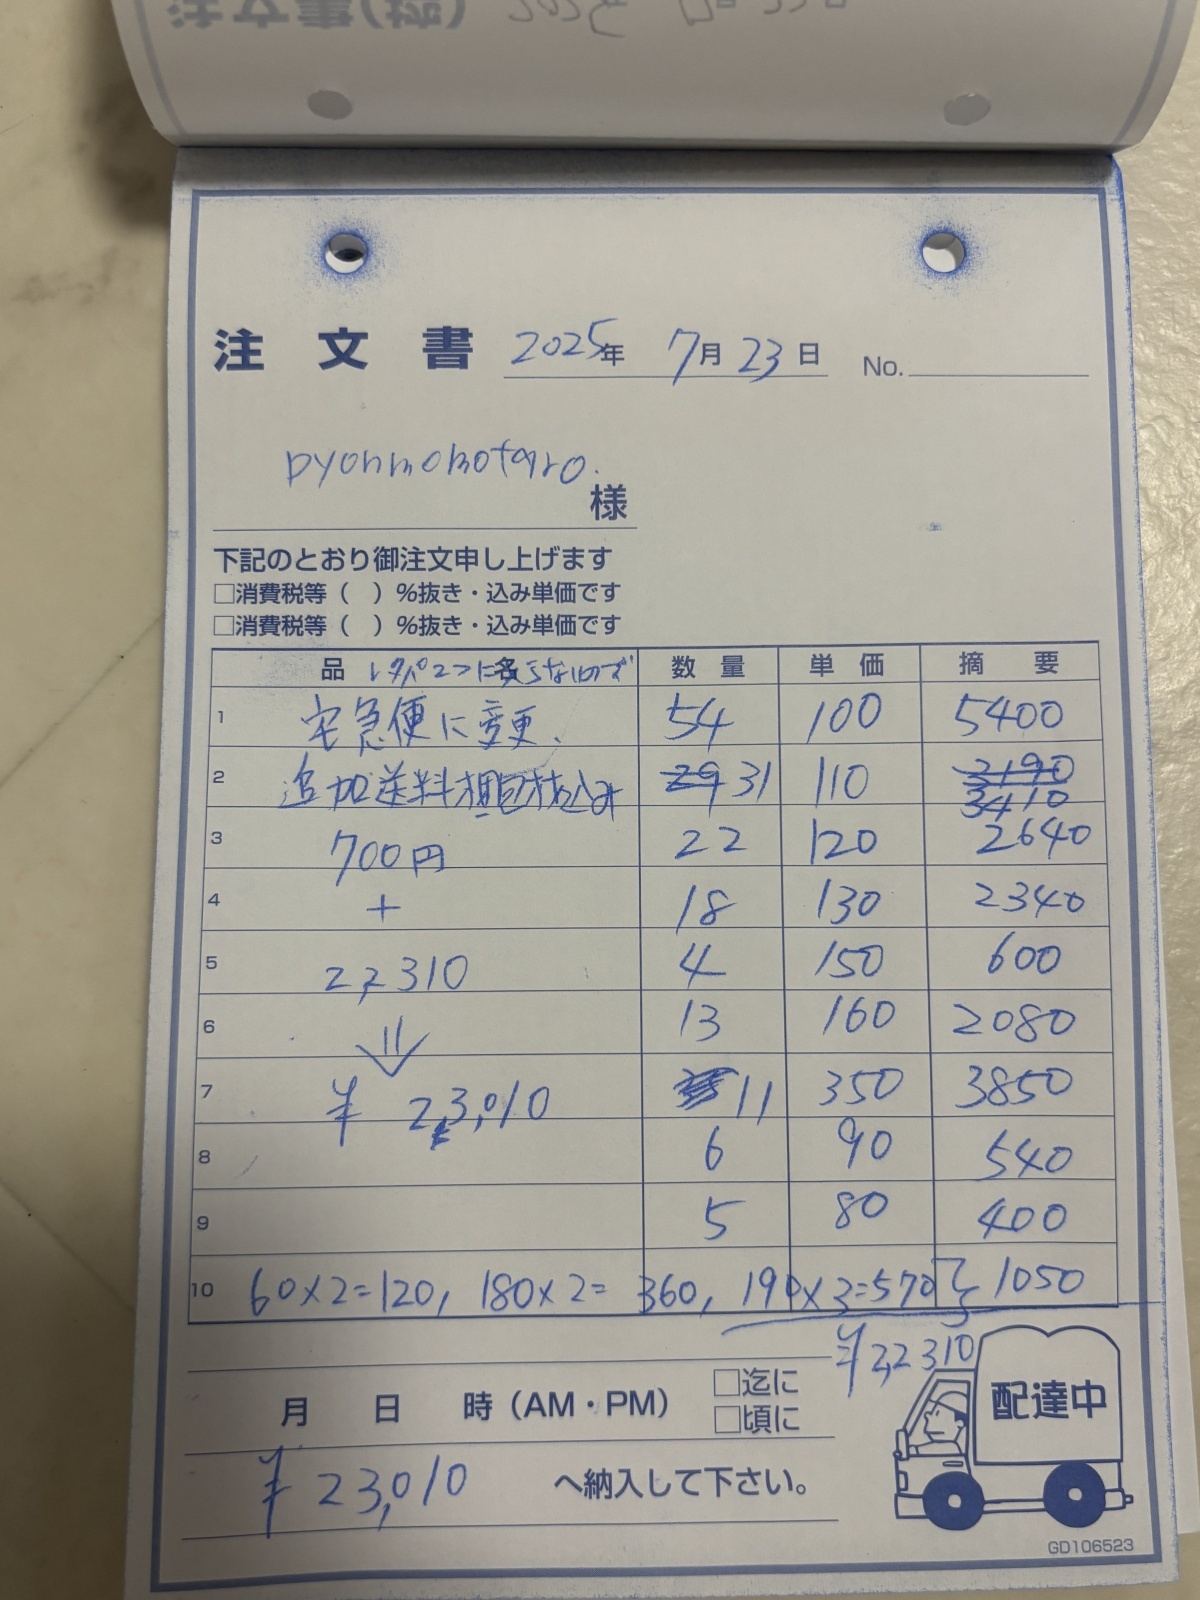 注文書(控) 2025
注文書 2025年 7月23日 No.
pyonmomotaro.
様
下記のとおり御注文申し上げます
□消費税等（　）％抜き・込み単価です
□消費税等（　）％抜き・込み単価です
品 レターパックに入らないので 数量 単価 摘要
1 宅急便に変更、 54 100 5400
2 追加送料梱包材込み 29 31 110 3190 3410
3 700円 22 120 2640
4 + 18 130 2340
5 22,310 4 150 600
6 13 160 2080
7 ¥ 23,010 11 350 3850
8 6 90 540
9 5 80 400
10 60×2=120, 180×2= 360, 190×3=570 1050
¥22310
月 日 時（AM・PM） □迄に
□頃に
配達中
¥23,010 へ納入して下さい。
GD106523